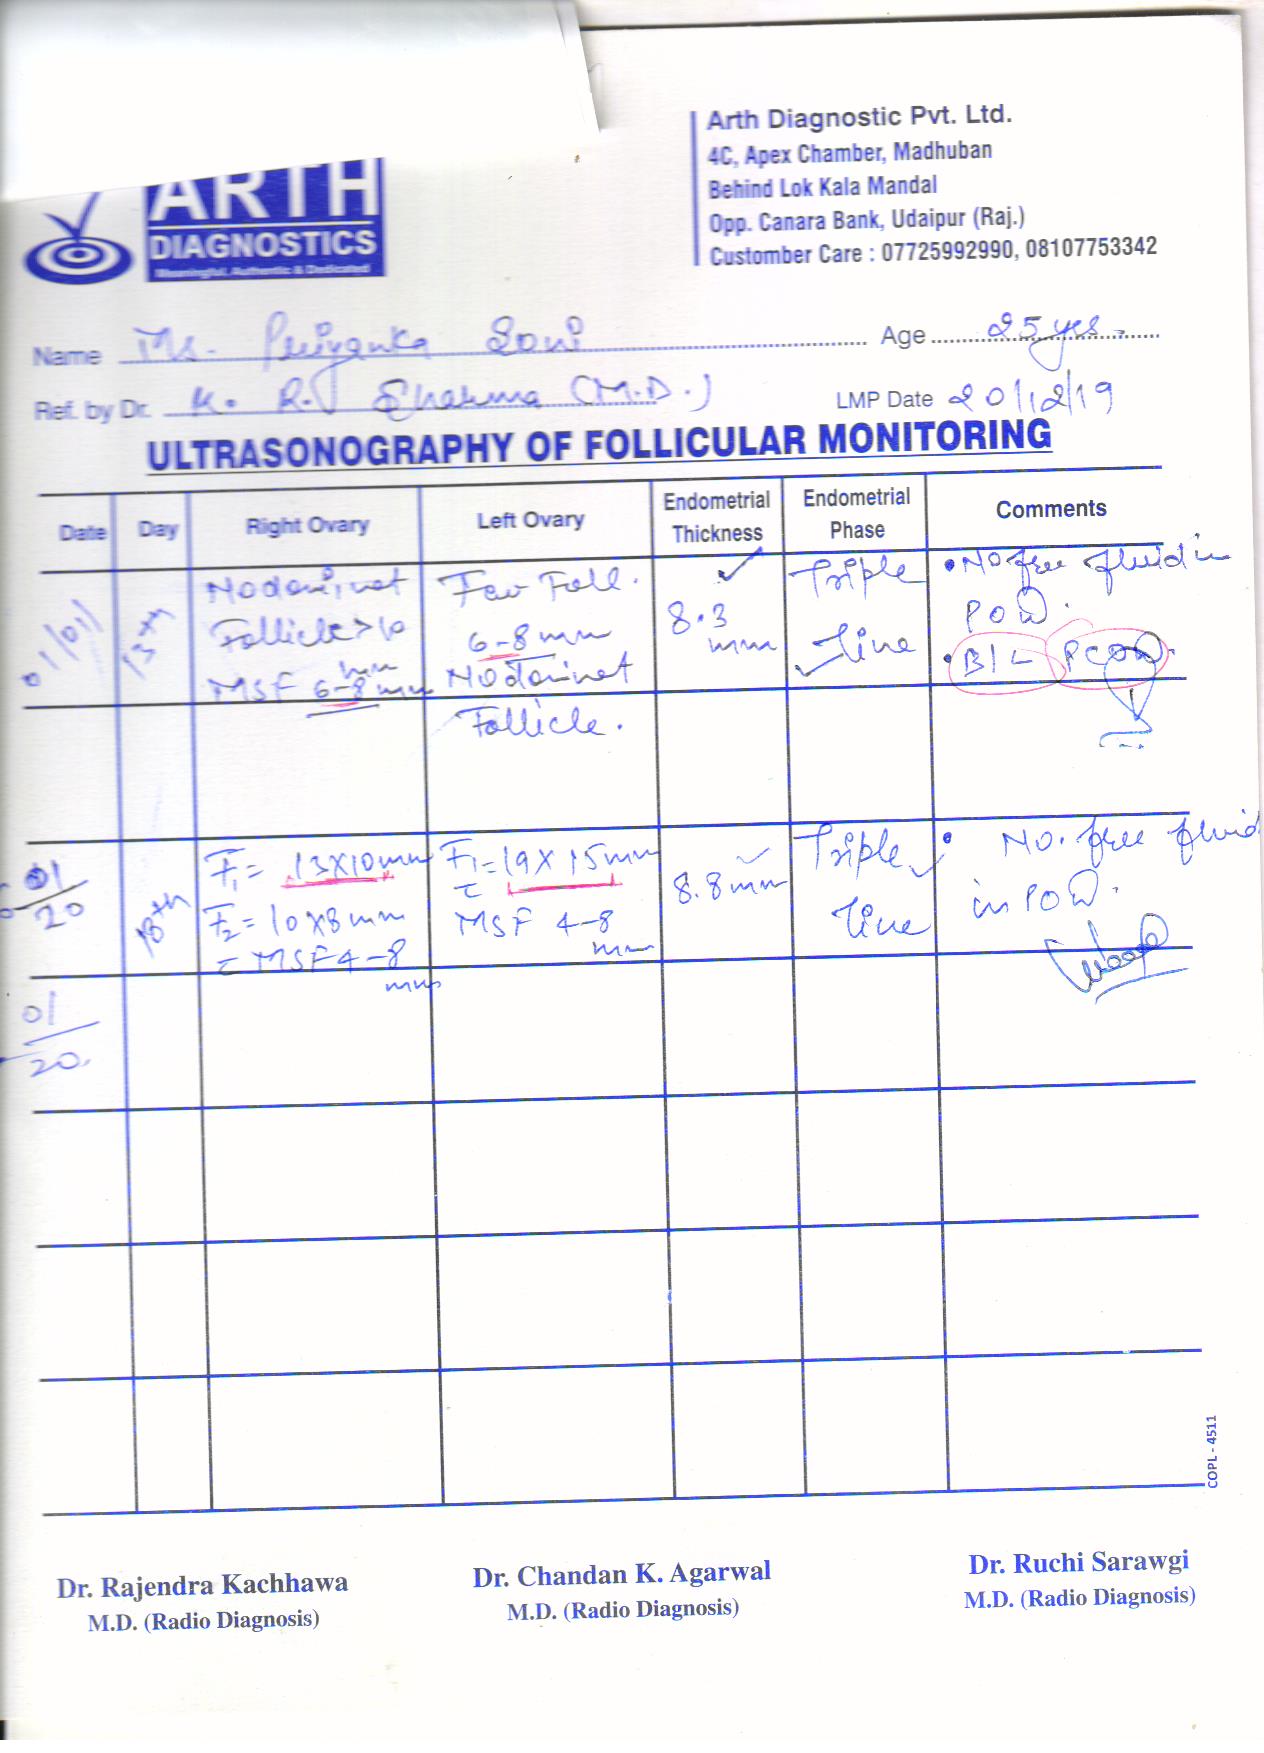 ARTH
DIAGNOSTICS
Meaningful, Authentic & Dedicated
Arth Diagnostic Pvt. Ltd.
4C, Apex Chamber, Madhuban
Behind Lok Kala Mandal
Opp. Canara Bank, Udaipur (Raj.)
Customber Care : 07725992990, 08107753342
Name Ms. Priyanka Soni Age 25 yrs.
Ref. by Dr. K. R. Sharma (M.D.) LMP Date 20/12/19
ULTRASONOGRAPHY OF FOLLICULAR MONITORING
Date Day Right Ovary Left Ovary Endometrial Thickness Endometrial Phase Comments
01/01/ 13th
No dominet
Follicle > 10
mm
MSF 6-8 mm
Few Foll.
6-8 mm
No dominet
Follicle.
8.3
mm
Triple
line
• No free fluid in
POD.
• B/L PCOD.
01
20
18th
F1 = 13X10mm
F2 = 10X8mm
c MSF 4-8
mm
F1 = 19 X 15mm
c
MSF 4-8
mm
8.8mm
Triple
line
• No. free fluid
in POD.
01
20.
COPL - 4511
Dr. Rajendra Kachhawa
M.D. (Radio Diagnosis)
Dr. Chandan K. Agarwal
M.D. (Radio Diagnosis)
Dr. Ruchi Sarawgi
M.D. (Radio Diagnosis)